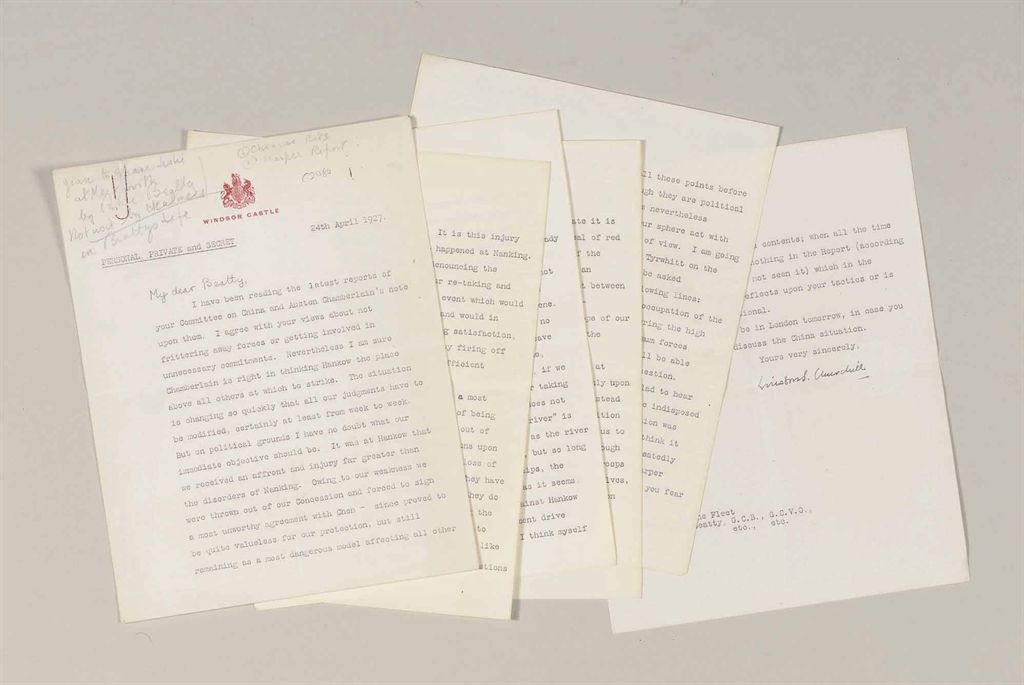 Beatty
Report
WINDSOR CASTLE
24th April 1927.
PERSONAL, PRIVATE and SECRET
My dear Beatty,
I have been reading the latest reports of
your Committee on China and Austen Chamberlain's note
upon them. I agree with your views about not
frittering away forces or getting involved in
unnecessary commitments. Nevertheless I am sure
Chamberlain is right in thinking Hankow the place
above all others at which to strike. The situation
is changing so quickly that all our judgments have to
be modified, certainly at least from week to week.
But on political grounds I have no doubt what our
immediate objective should be. It was at Hankow that
we received an affront and injury far greater than
the disorders of Nanking. Owing to our weakness we
were thrown out of our Concession and forced to sign
a most unworthy agreement with Chen - since proved to
be quite valueless for our protection, but still
remaining as a most dangerous model affecting all other
It is this injury
happened at Nanking.
enouncing the
re-taking and
event which would
and would in
satisfaction.
firing off
fficient
a most
of being
out of
upon
loss of
they have
they do
the
to
like
stions
ate it is
al of red
the
an
between
no
pe of our
ave
the
if we
at
taking
ly upon
oes not
stead
river" is
ition
as the river
us to
but so long
ough
ips, the
oops
as it seems
lves,
ainst Hankow
on
ent drive
I think myself
ll these points before
gh they are political
s nevertheless
ur sphere act with
of view. I am going
Tyrwhitt on the
be asked
lowing lines:
occupation of the
ring the high
forces
ll be able
estion.
lad to hear
indisposed
ion was
think it
eatedly
rper
you fear
contents; when all the time
nothing in the Report (according
not seen it) which in the
reflects upon your tactics or is
ional.
be in London tomorrow, in case you
discuss the China situation.
Yours very sincerely,
Winston S. Churchill
he Fleet
eatty, G.C.B., G.C.V.O.,
etc., etc.